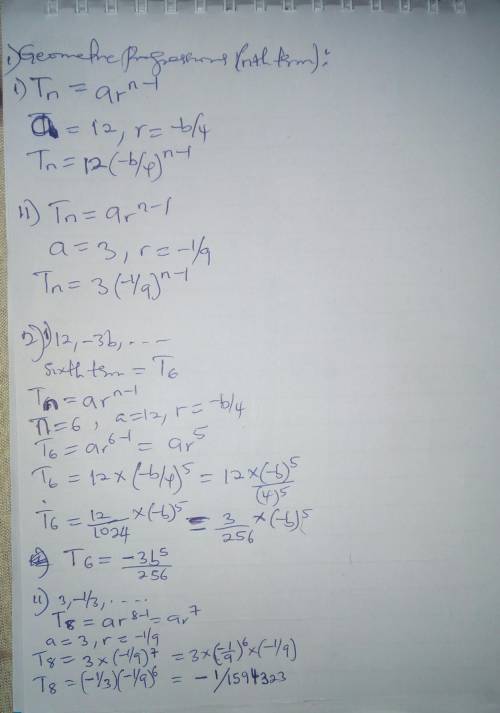 1) Geometric Progressions (nth term):
i) Tn = ar^n-1
a = 12, r = -b/4
Tn = 12(-b/4)^n-1
ii) Tn = ar^n-1
a = 3, r = -1/9
Tn = 3(-1/9)^n-1
2) i) 12, -3b, ....
sixth term = T6
Tn = ar^n-1
n = 6, a = 12, r = -b/4
T6 = ar^6-1 = ar^5
T6 = 12 × (-b/4)^5 = 12 × (-b)^5/(4)^5
T6 = 12/1024 × (-b)^5 = 3/256 × (-b)^5
T6 = -3b^5/256
ii) 3, -1/3, .....
T8 = ar^8-1 = ar^7
a = 3, r = -1/9
T8 = 3 × (-1/9)^7 = 3 × (-1/9)^6 × (-1/9)
T8 = (-1/3)(-1/9)^6 = -1/1594323